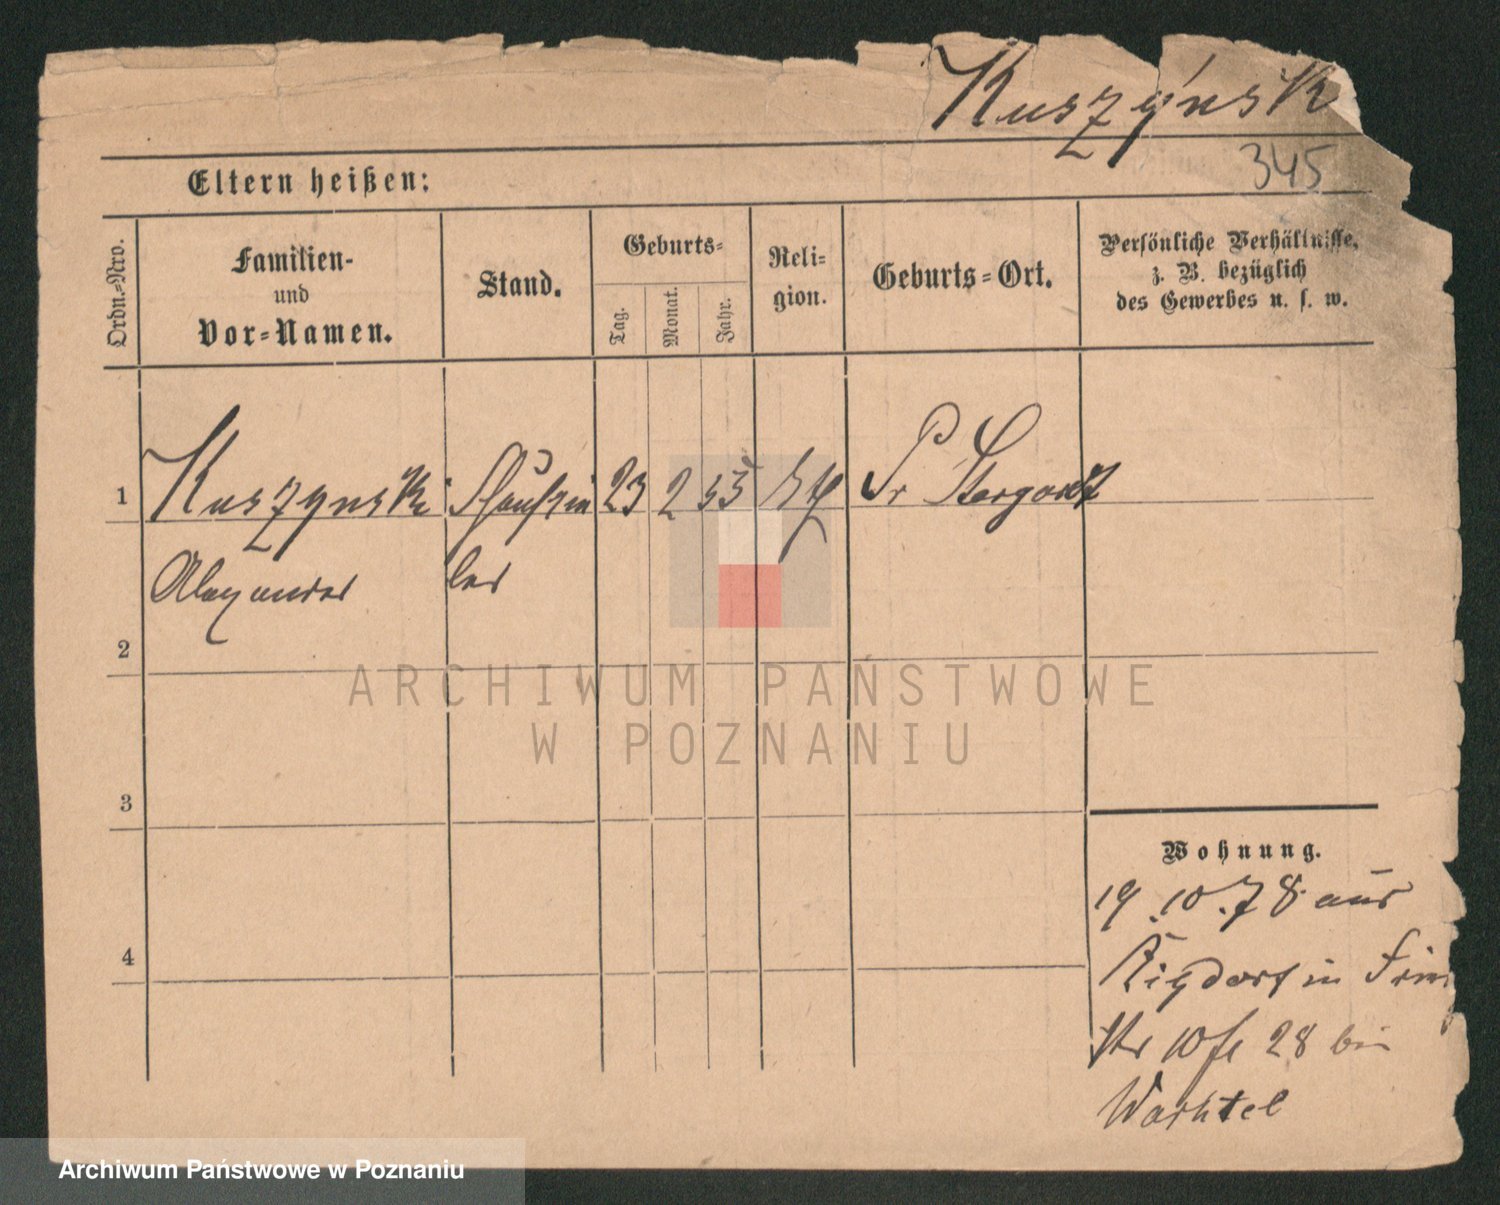 Kuszyńsk
345
Eltern heißen:
Ordn.-Nro.
Familien-
und
Vor-Namen.
Stand.
Geburts-
Tag.
Monat.
Jahr.
Reli-
gion.
Geburts-Ort.
Persönliche Verhältnisse,
z. B. bezüglich
des Gewerbes u. s. w.
1
Kuszynski
23 2 53
Pr Stargardt
Alexander
ler
2
3
4
Wohnung.
19.10.78 aus
Rixdorf in
28 bei
Wachtel
ARCHIWUM PAŃSTWOWE
W POZNANIU
Archiwum Państwowe w Poznaniu